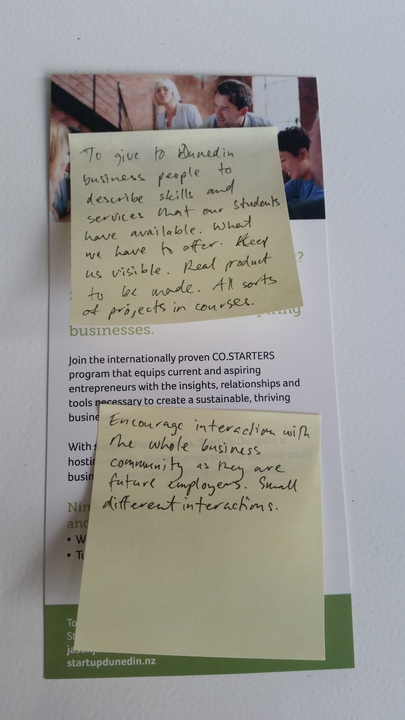 To give to Dunedin
business people to
describe skills and
services that our students
have available. What
we have to offer. Keep
us visible. Real product
to be made. All sorts
of projects in courses.
?
businesses.
Join the internationally proven CO.STARTERS
program that equips current and aspiring
entrepreneurs with the insights, relationships and
tools necessary to create a sustainable, thriving
Encourage interaction with
the whole business
community as they are
future employers. Small
different interactions.
With
startupdunedin.nz